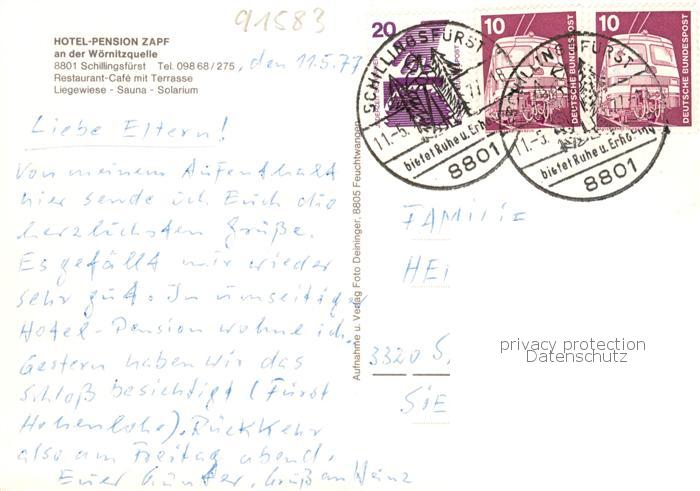 91583
HOTEL-PENSION ZAPF
an der Wörnitzquelle
8801 Schillingsfürst Tel. 098 68 / 275, den 11.5.77
Restaurant-Café mit Terrasse
Liegewiese - Sauna - Solarium
Liebe Eltern!
Von meinem Aufenthalt
hier sende ich Euch die
herzlichsten Grüße.
Es gefällt mir wieder
sehr gut. In umseitiger
Hotel-Pension wohne ich.
Gestern haben wir das
Schloß besichtigt (Fürst
Hohenlohe). Rückkehr
also am Freitag abend.
Euer Günter, Gruß an Heinz
Aufnahme u. Verlag Foto Deininger, 8805 Feuchtwangen
20
10
DEUTSCHE BUNDESPOST
10
DEUTSCHE BUNDESPOST
SCHILLINGSFÜRST
11.-5.
bietet Ruhe u. Erholung
8801
SCHILLINGSFÜRST
11.-5.
bietet Ruhe u. Erholung
8801
FAMILIE
HEI
3320 S
SIE
privacy protection
Datenschutz